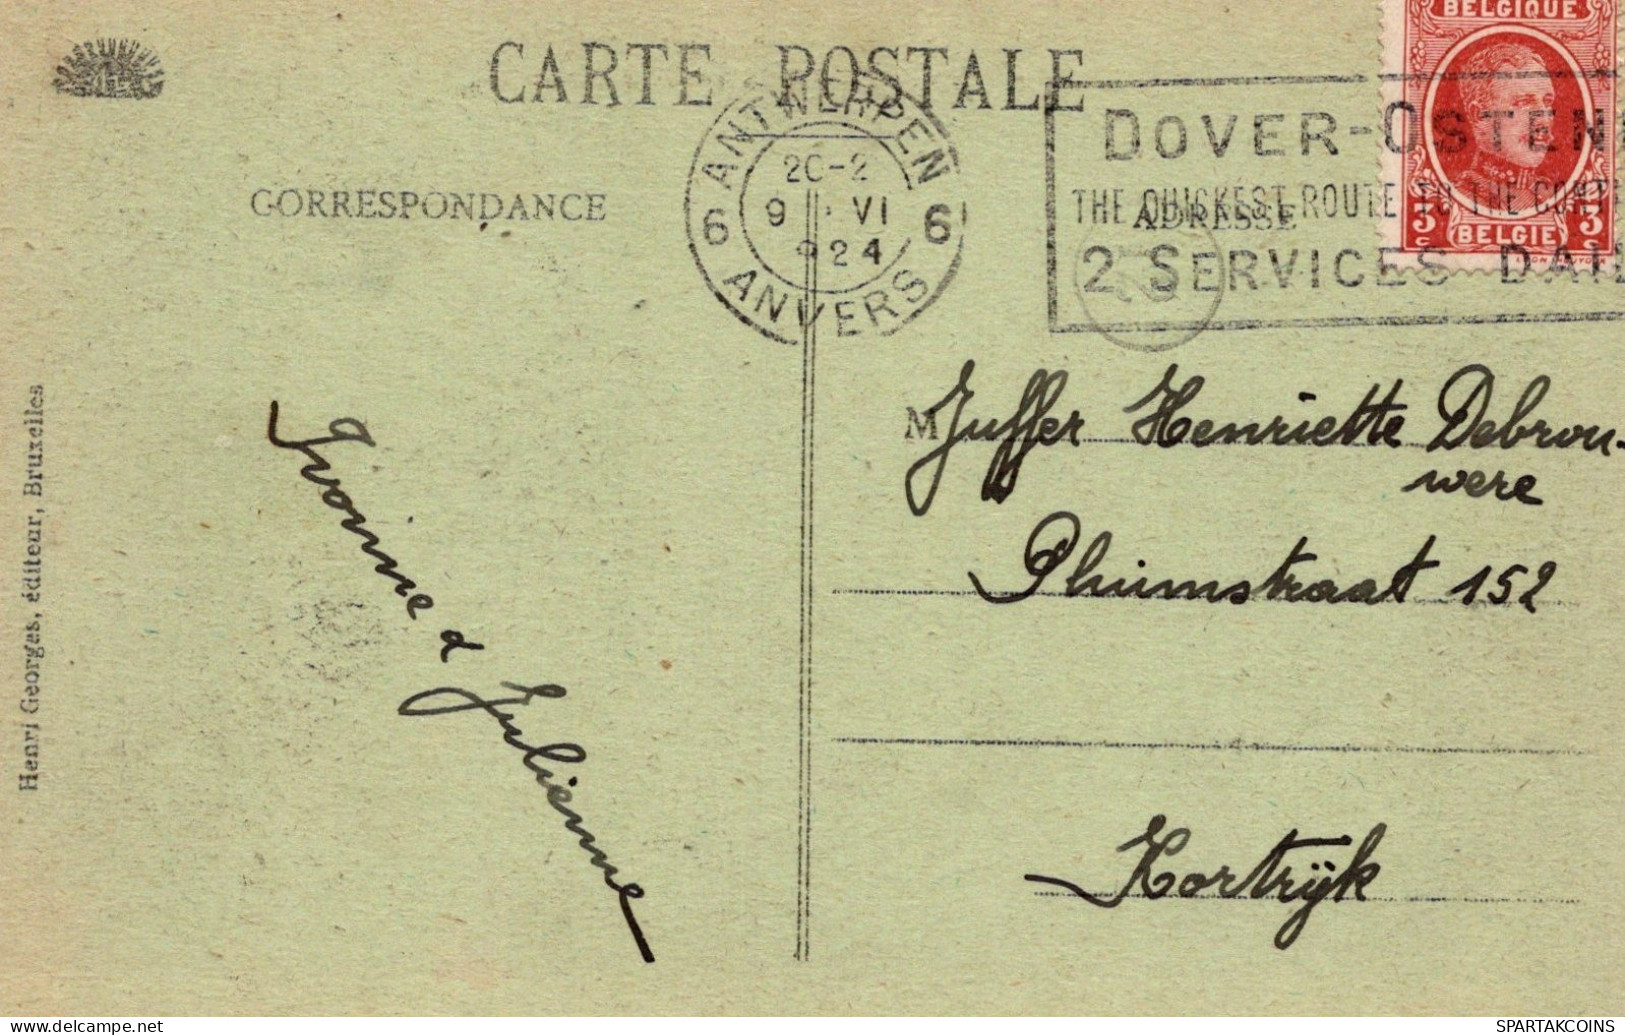 CARTE POSTALE
BELGIQUE
ANTWERPEN
20-2
9 VI
924
6 6
ANVERS
DOVER-OSTEN
THE QUICKEST ROUTE TO THE CONTI
2 SERVICES DAIL
3 c BELGIE 3 c
CORRESPONDANCE
ADRESSE
M Juffer Henriette Debrou-
were
Pluimstraat 152
Kortrijk
Yvonne &
Julienne
Henri Georges, éditeur, Bruxelles
www.delcampe.net
SPARTAKCOINS